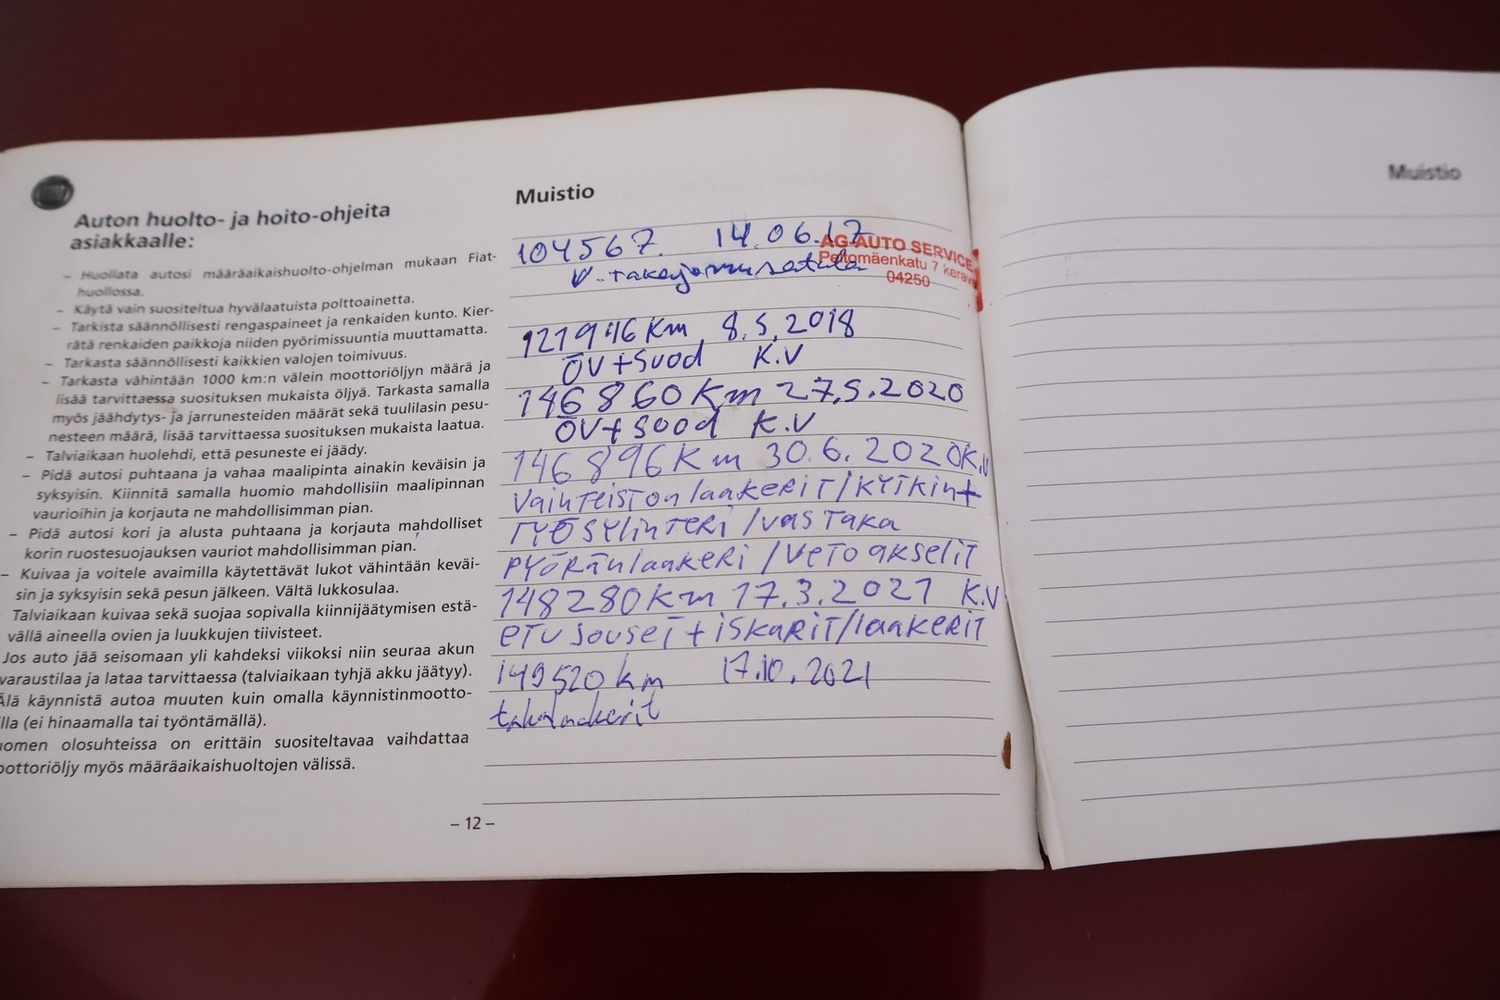 Auton huolto- ja hoito-ohjeita
asiakkaalle:
– Huollata autosi määräaikaishuolto-ohjelman mukaan Fiat-
huollossa.
– Käytä vain suositeltua hyvälaatuista polttoainetta.
– Tarkista säännöllisesti rengaspaineet ja renkaiden kunto. Kier-
rätä renkaiden paikkoja niiden pyörimissuuntia muuttamatta.
– Tarkasta säännöllisesti kaikkien valojen toimivuus.
– Tarkasta vähintään 1000 km:n välein moottoriöljyn määrä ja
lisää tarvittaessa suosituksen mukaista öljyä. Tarkasta samalla
myös jäähdytys- ja jarrunesteiden määrät sekä tuulilasin pesu-
nesteen määrä, lisää tarvittaessa suosituksen mukaista laatua.
– Talviaikaan huolehdi, että pesuneste ei jäädy.
– Pidä autosi puhtaana ja vahaa maalipinta ainakin keväisin ja
syksyisin. Kiinnitä samalla huomio mahdollisiin maalipinnan
vaurioihin ja korjauta ne mahdollisimman pian.
– Pidä autosi kori ja alusta puhtaana ja korjauta mahdolliset
korin ruostesuojauksen vauriot mahdollisimman pian.
– Kuivaa ja voitele avaimilla käytettävät lukot vähintään keväi-
sin ja syksyisin sekä pesun jälkeen. Vältä lukkosulaa.
Talviaikaan kuivaa sekä suojaa sopivalla kiinnijäätymisen estä-
vällä aineella ovien ja luukkujen tiivisteet.
Jos auto jää seisomaan yli kahdeksi viikoksi niin seuraa akun
varaustilaa ja lataa tarvittaessa (talviaikaan tyhjä akku jäätyy).
Älä käynnistä autoa muuten kuin omalla käynnistinmootto-
lla (ei hinaamalla tai työntämällä).
omen olosuhteissa on erittäin suositeltavaa vaihdattaa
oottoriöljy myös määräaikaishuoltojen välissä.
– 12 –
Muistio
104567. 14.06.17
V-takajarrusatula
AG-AUTO SERVICE
Peltomäenkatu 7 kerava
04250
121946 Km 8.5.2018
ÖV+Suod K.V
146860 Km 27.5.2020
ÖV+suod K.V
146896 Km 30.6.2020 K.V
Vaihteiston laakerit/kytkin+
TYÖSYlinteri/vastaka
PYÖRänlaakeri/Vetoakselit
148280 km 17.3.2021 K.V
etu Jouset+iskarit/laakerit
149520 km 17.10.2021
takalaakerit
Muistio